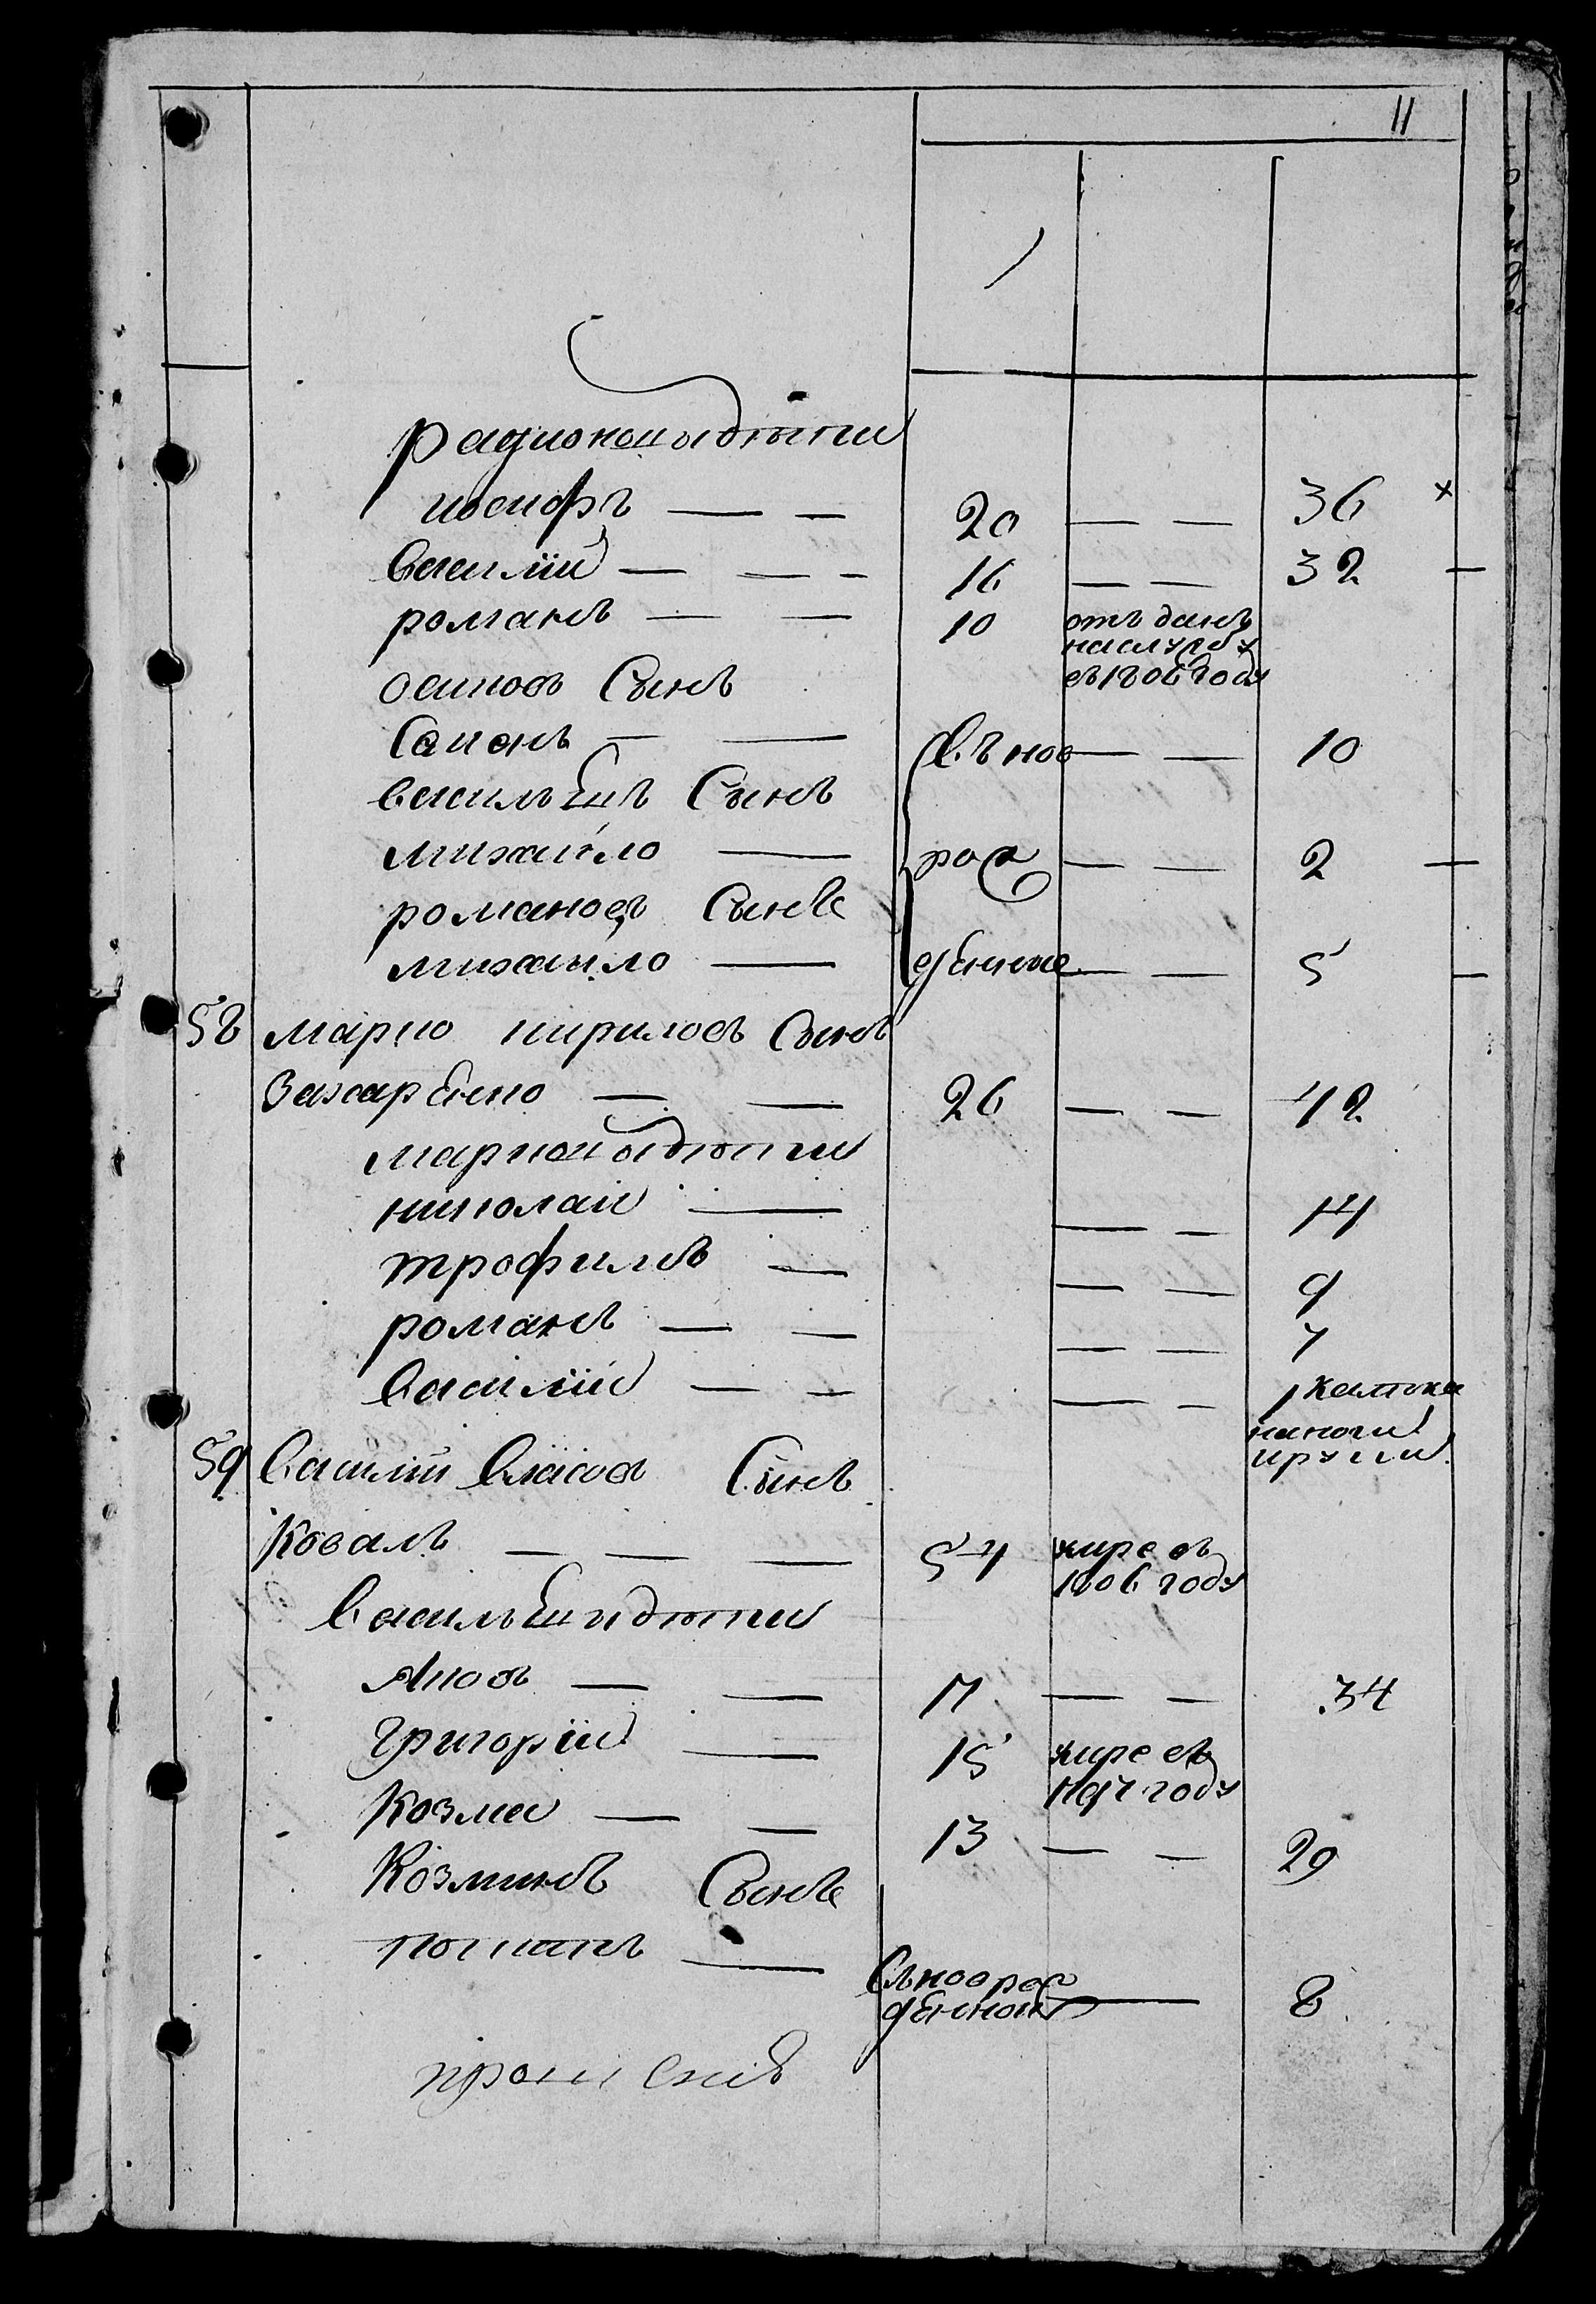 11
радионовы дѣти
иосифъ — — 20 — — 36 х
василий — — — 16 — — 32 —
романъ — — 10 отъ данъ
на службу
въ 1806 году
осиповъ Сынъ
Самонъ — — Въ ново — — 10
васильевъ Сынъ
михайло — рож — — 2 —
романовъ Сынъ
михайло — денные — — 5 —
58 марко кириловъ Сынъ
Захарѣнко — — 26 — — 42
марковы дѣти
николай — — — 14
трофимъ — — — 9
романъ — — — — 7
василий — — — — 1 калѣка
на ноги
и руки
59 василий власовъ Сынъ
Коваль — — — 54 умре въ
1806 году
васильевы дѣти
Яковъ — — 17 — — 34
Григорий — 15 умре въ
1797 году
Козма — — 13 — — 29
Козминъ Сынъ
потапъ — Въ новорож
денной — 8